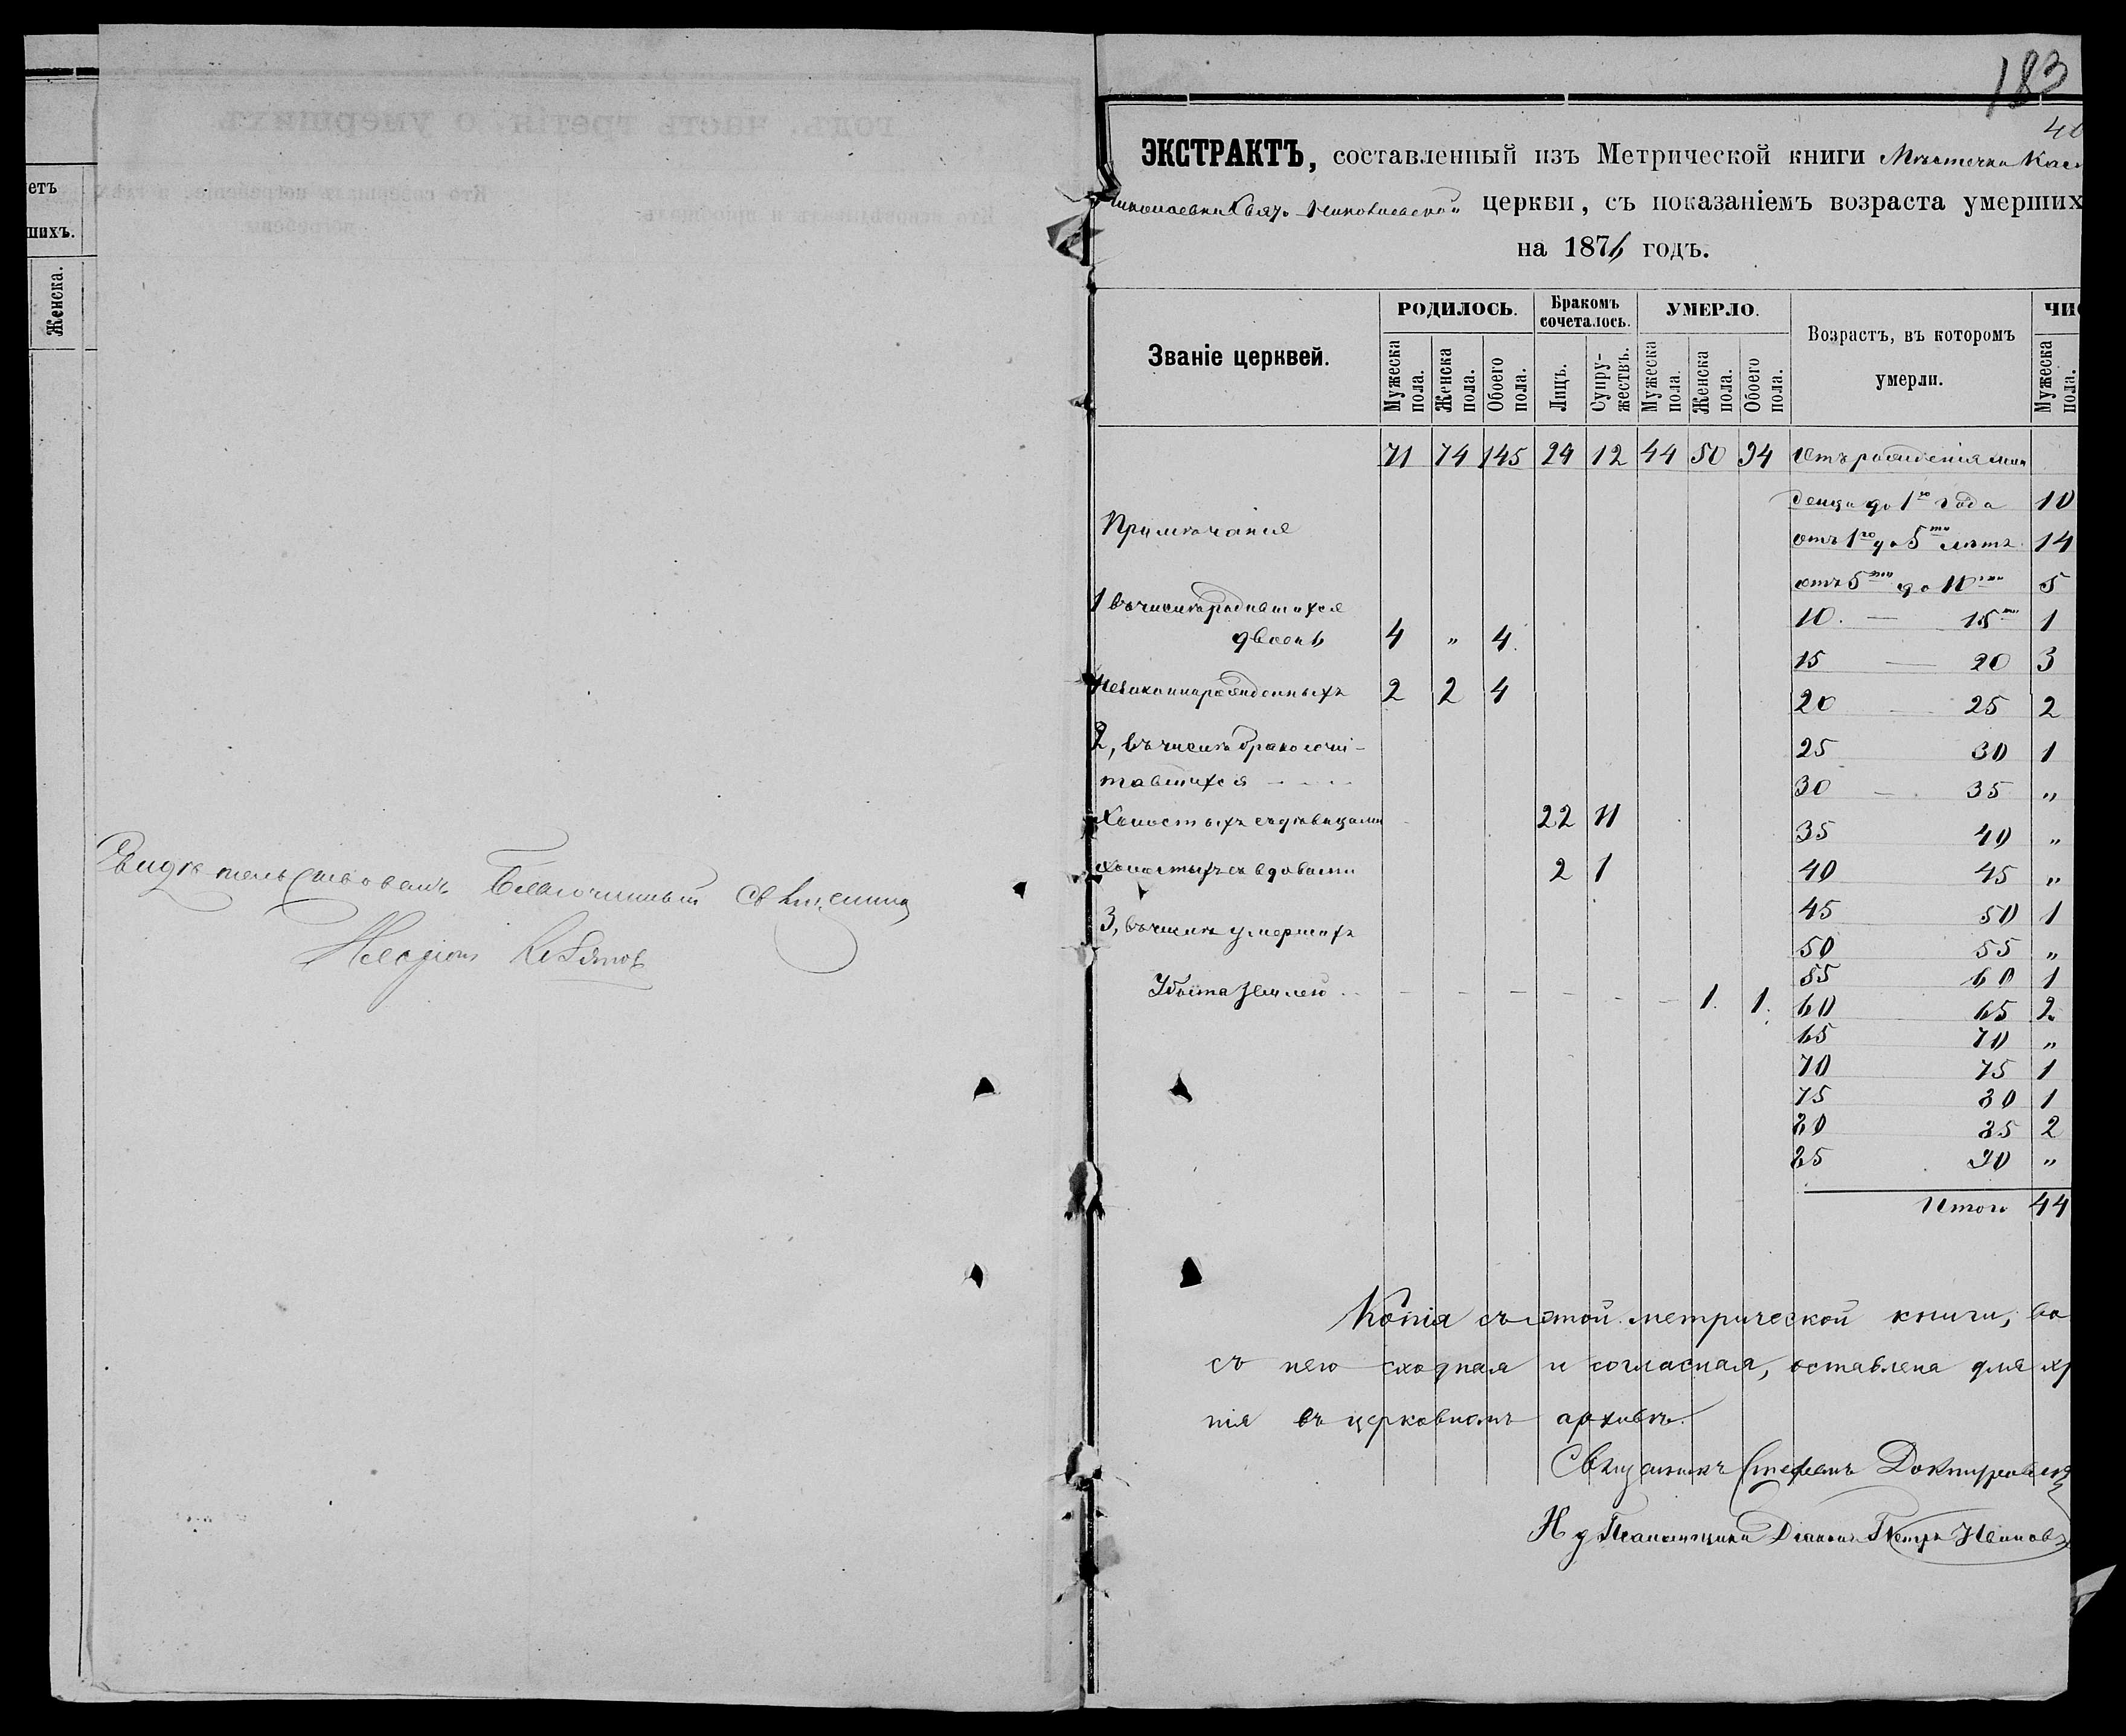 етъ
шихъ.
Женска.
Свидѣтельствовалъ Благочинный Священник
183
ЭКСТРАКТЪ, составленный изъ Метрической книги Мѣстечка
Николаевской церкви, съ показаніемъ возраста умерших
на 1876 годъ.
Званіе церквей.
РОДИЛОСЬ.
Бракомъ сочеталось.
УМЕРЛО.
Возрастъ, въ которомъ
умерли.
ЧИС
Мужеска пола.
Женска пола.
Обоего пола.
Лицъ.
Супружествъ.
Мужеска пола.
Женска пола.
Обоего пола.
Мужеска пола.
71 74 145 24 12 44 50 94 Отъ рожденія мла
денца до 1го года 10
Примѣчанія
отъ 1го до 5ти лѣтъ 14
отъ 5ти до 10ти 5
1 въ числѣ родившихся
10. — 15ти 1
двоень 4 „ 4.
15 — 20 3
Незаконнорожденныхъ 2 2 4
20 25 2
2, въ числѣ бракосочи-
25 30 1
тавшихся
30 — 35 „
Холостыхъ съ дѣвицами 22 11
35 40 „
холостыхъ съ вдовами 2 1
40 45 „
45 50 1
3, въ числѣ умершихъ
50 55 „
55 60 1
Убита землею 1. 1.
60 65 2
65 70 „
70 75 1
75 80 1
80 85 2
85 90 „
Итого 44
Копія съ этой метрической книги, во
съ нею сходная и согласная, оставлена для хр
нія въ церковномъ архивѣ.
Священникъ Стефанъ
И д Псаломщика Діаконъ Петръ Ивановъ